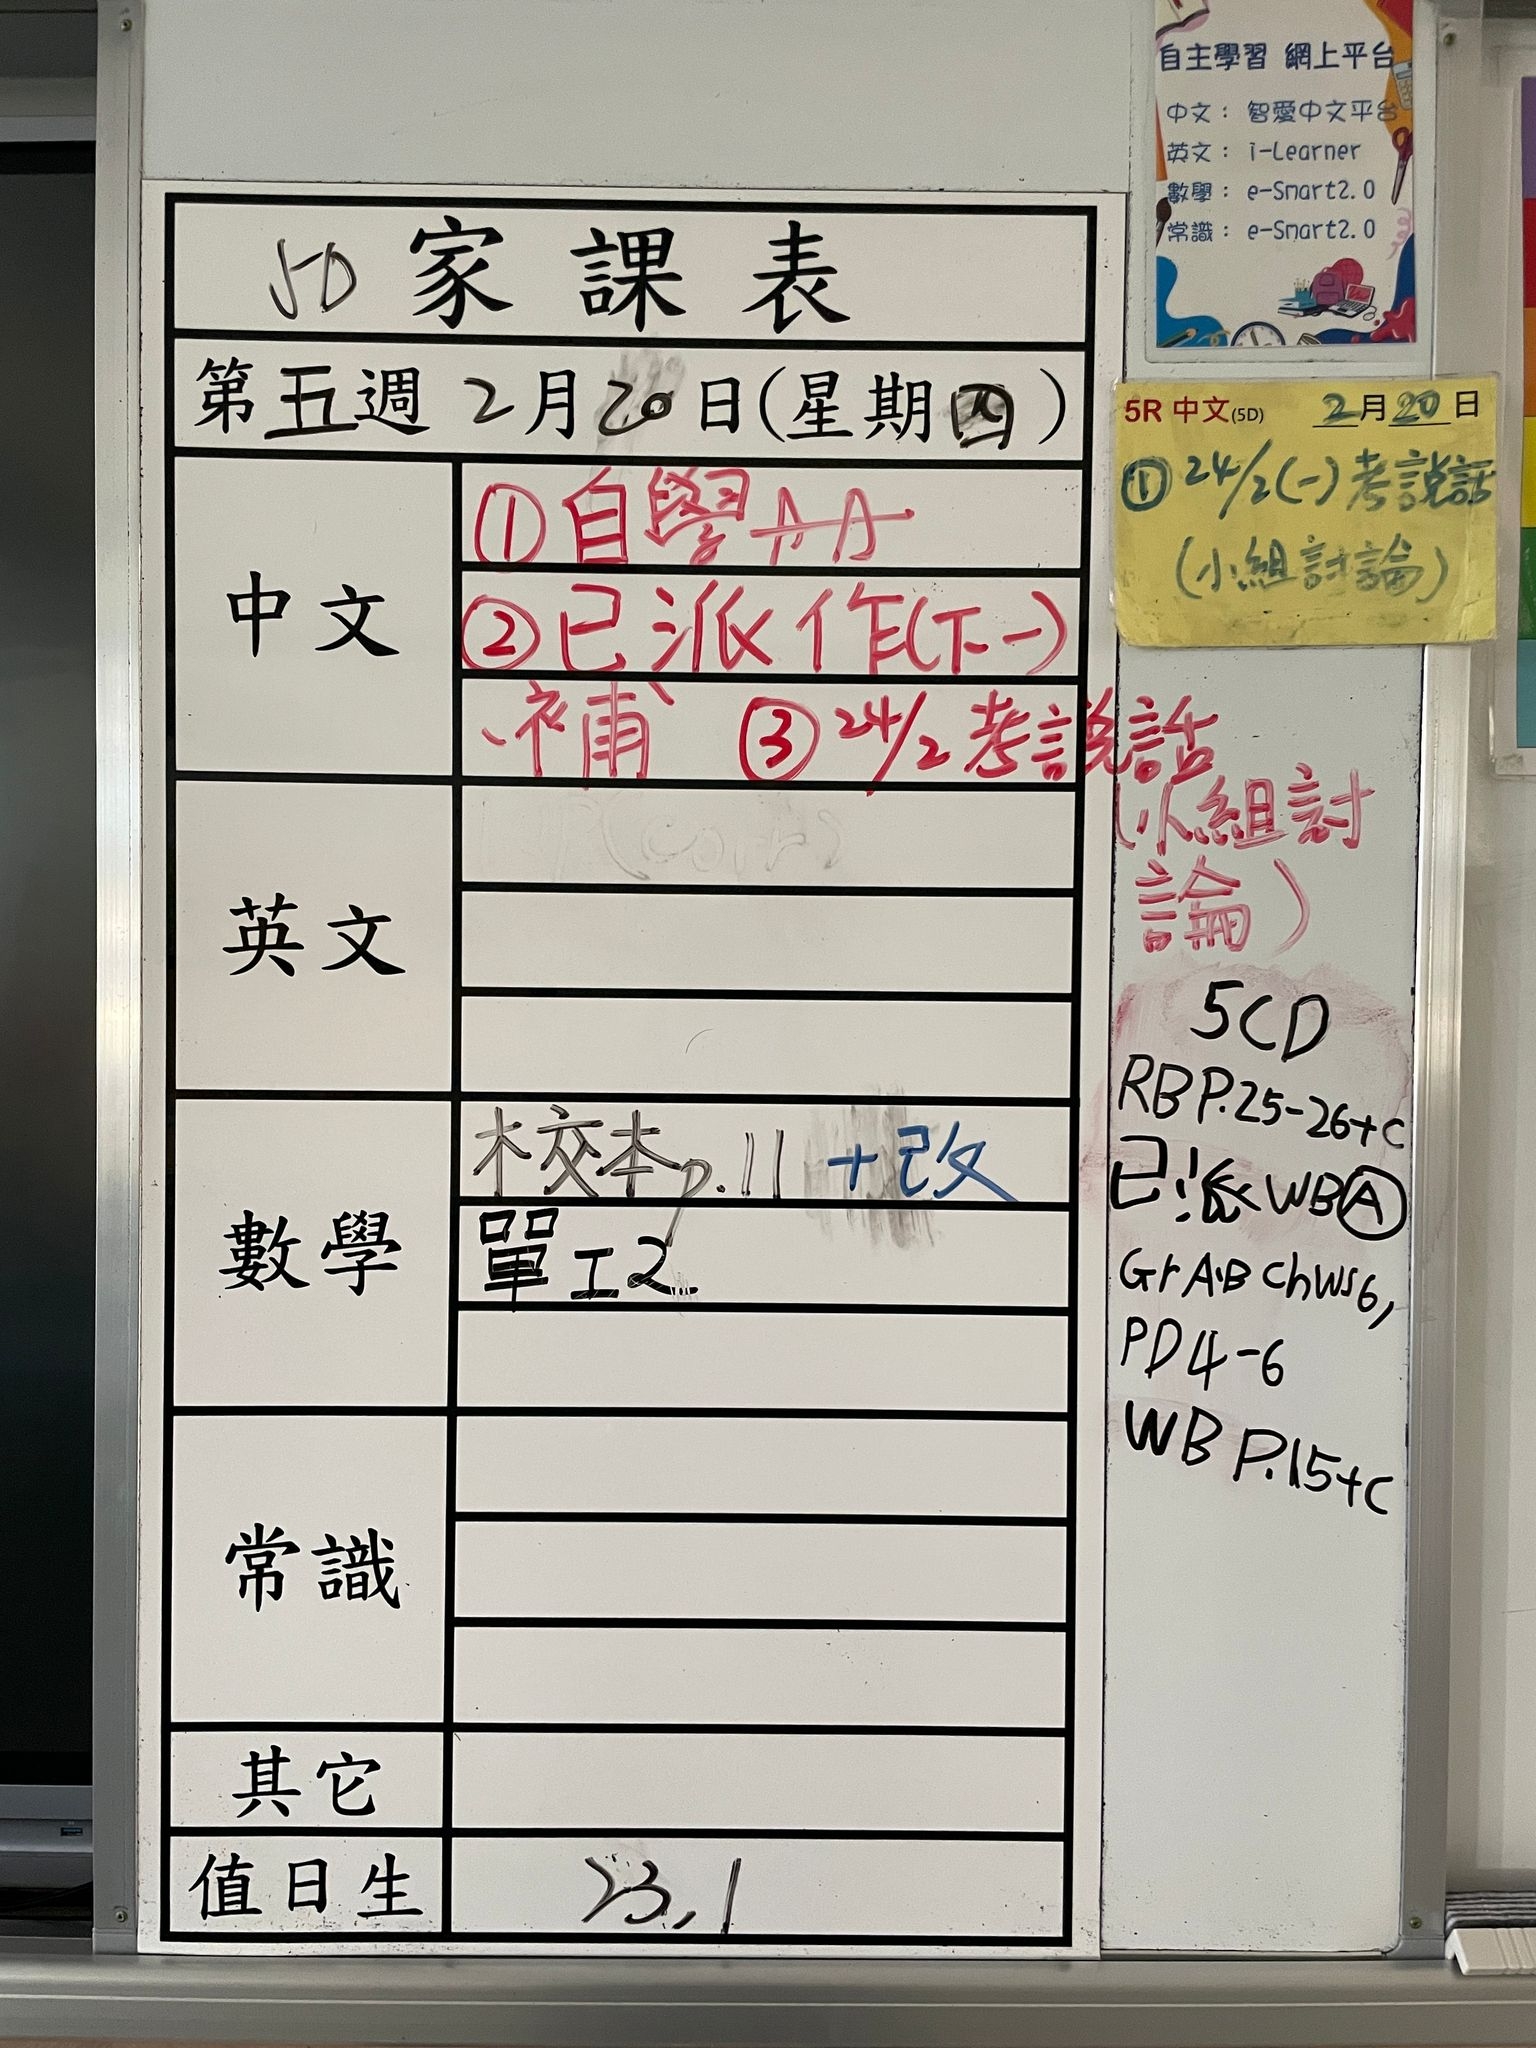 自主學習 網上平台
中文： 智愛中文平台
英文： i-Learner
數學： e-Smart2.0
常識： e-Smart2.0
5D 家課表
第五週 2月20日(星期四)
5R 中文(5D) 2月20日
① 24/2(一)考說話
(小組討論)
中文
①自學
②已派作(下一)
補 ③24/2考說話
(小組討
論)
英文
(corr)
數學
校本p.11 +改
單工2
常識
其它
值日生
23,1
5CD
RB P.25-26+c
已派WBⒶ
Gr A·B ChWS6,
PD4-6
WB P.15+c